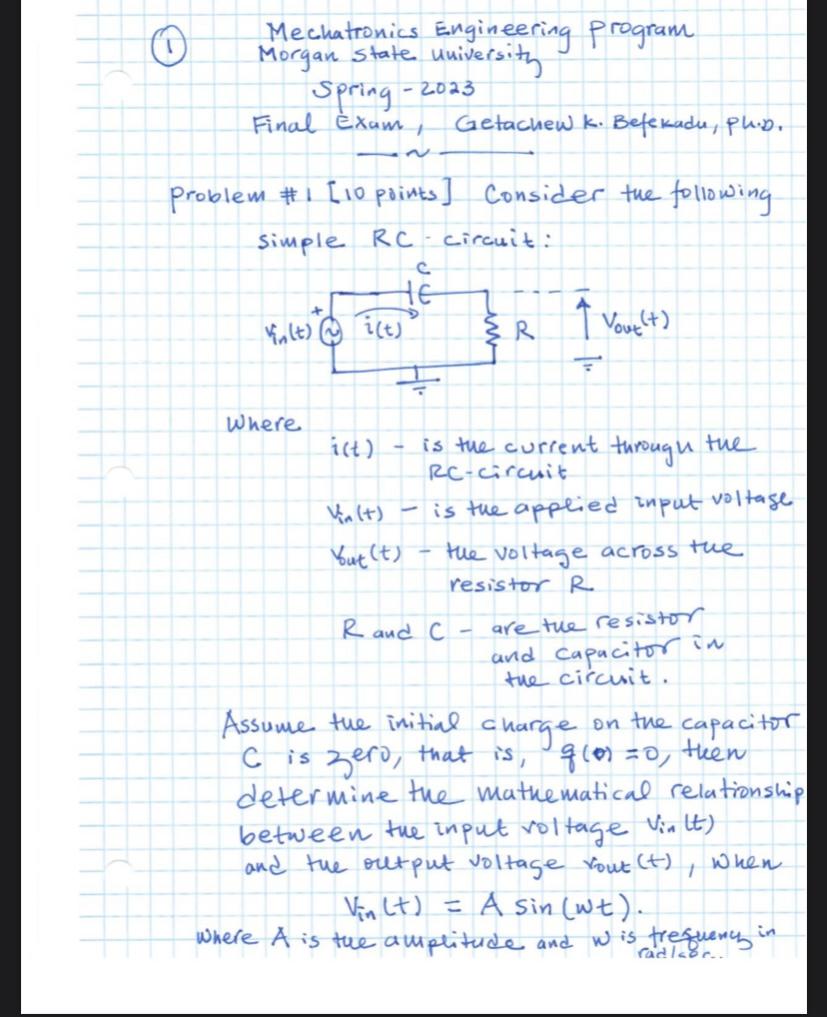 1
Mechatronics Engineering Program
Morgan State University
Spring - 2023
Final Exam, Getachew K. Befekadu, Ph.D.
Problem #1 [10 points] Consider the following
simple RC-circuit:
C
+
Vin(t) i(t) R Vout(t)
Where
i(t) - is the current through the
RC-circuit
Vin(t) - is the applied input voltage
Vout(t) - the voltage across the
resistor R
R and C - are the resistor
and capacitor in
the circuit.
Assume the initial charge on the capacitor
C is zero, that is, q(0) = 0, then
determine the mathematical relationship
between the input voltage Vin(t)
and the output voltage Vout(t), when
Vin(t) = A sin(wt).
Where A is the amplitude and w is frequency in
rad/sec.